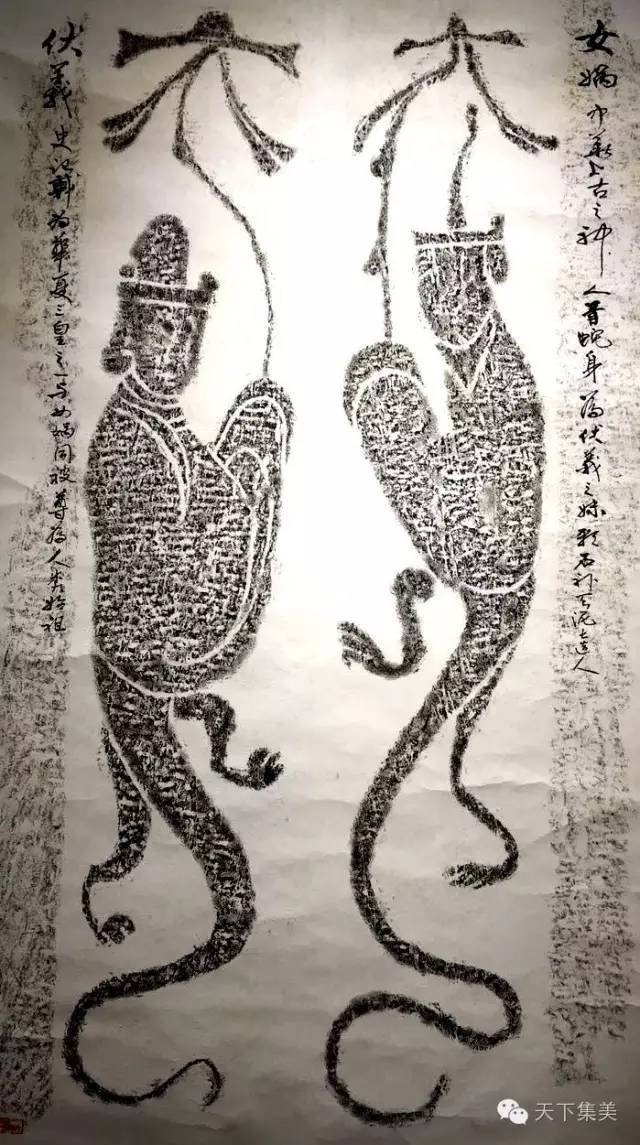 女媧 中華上古之神 人首蛇身為伏羲之妹 石补天泥造人
伏羲 史記稱为華夏三皇之一与女媧同被尊为人类始祖
天下集美